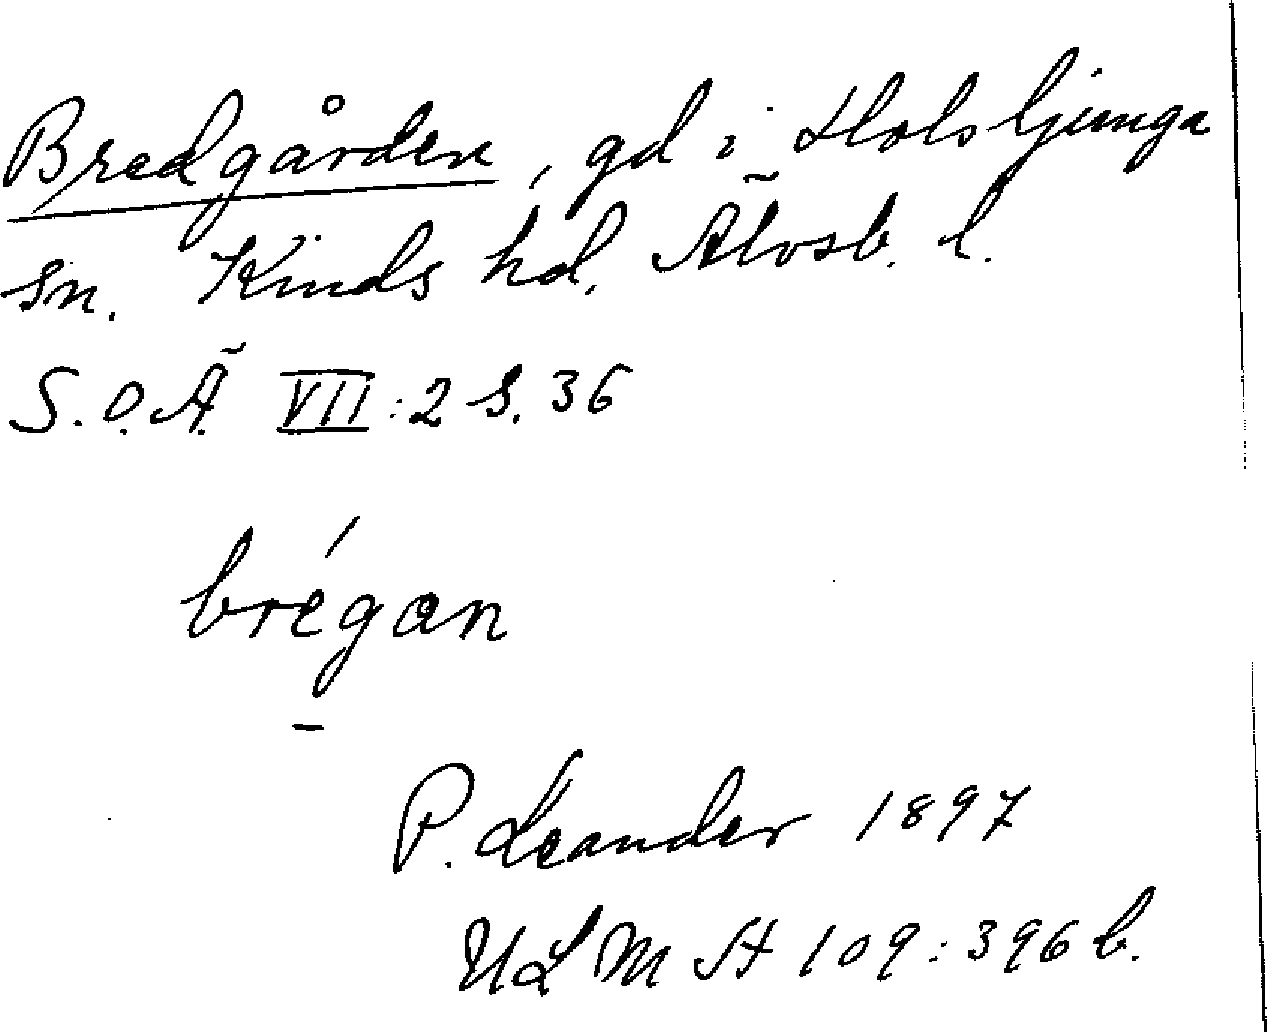 Bredgården, gd i Holsljunga
sn. Kinds hd, Älvsb. l.
S.O.Ä VII:2 S. 36
brégan
P. Leander 1897
ULMA 109:396 b.